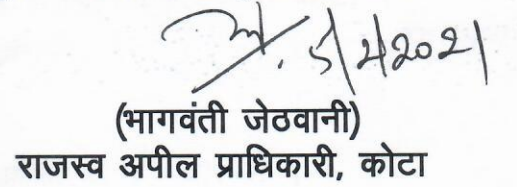 5/2/2021
(भागवंती जेठवानी)
राजस्व अपील प्राधिकारी, कोटा